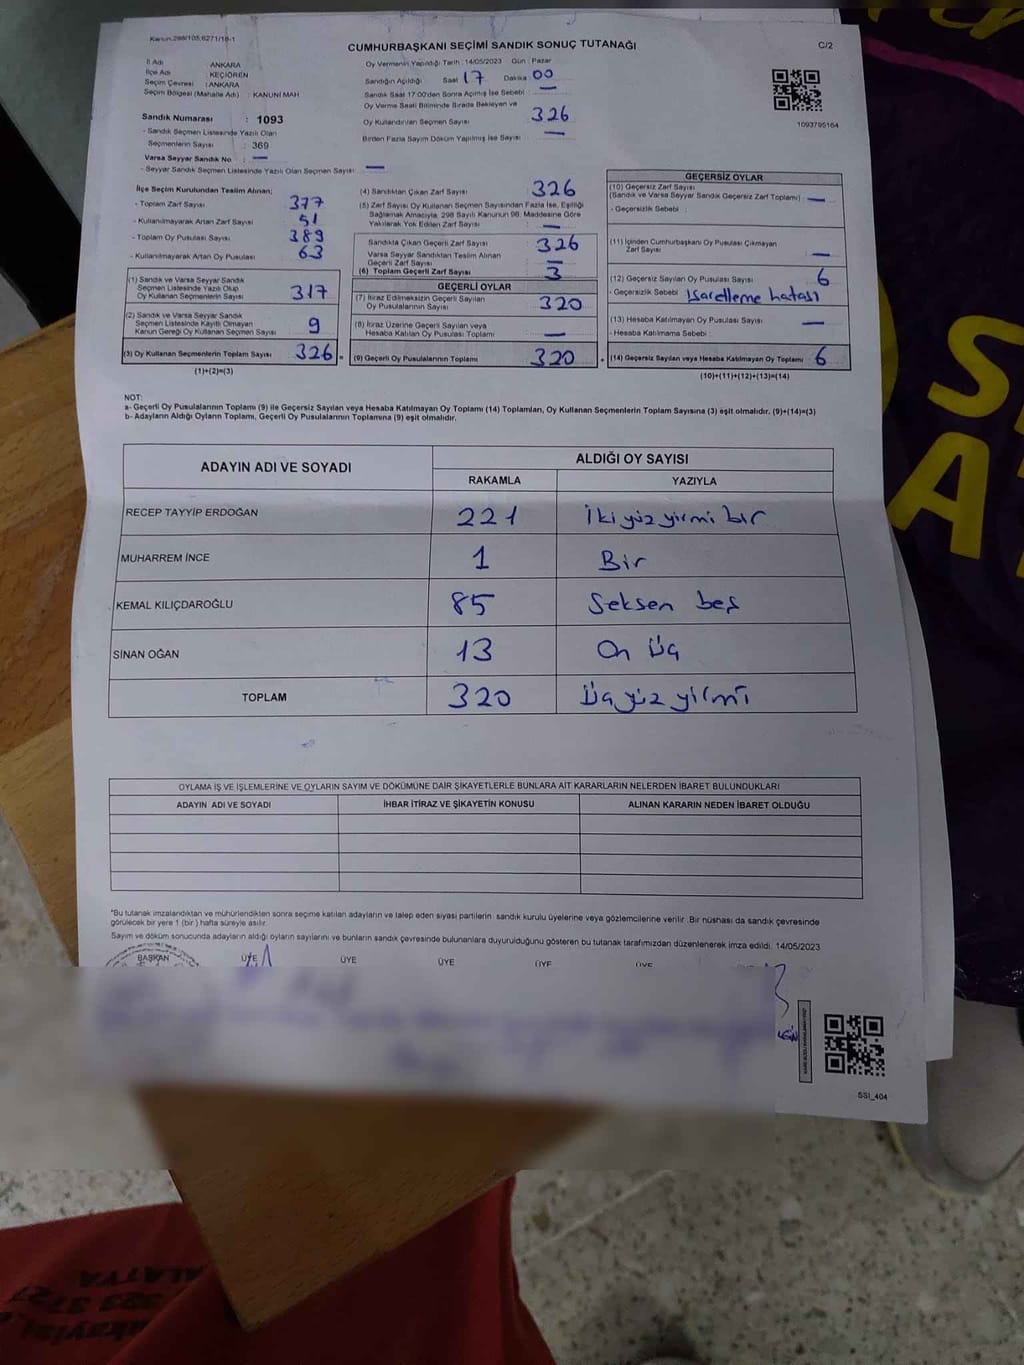 Kanun:298/105,6271/18-1
CUMHURBAŞKANI SEÇİMİ SANDIK SONUÇ TUTANAĞI
C/2
İl Adı : ANKARA
İlçe Adı : KEÇİÖREN
Seçim Çevresi : ANKARA
Seçim Bölgesi (Mahalle Adı) : KANUNİ MAH
Sandık Numarası : 1093
- Sandık Seçmen Listesinde Yazılı Olan
Seçmenlerin Sayısı : 369
Varsa Seyyar Sandık No : —
- Seyyar Sandık Seçmen Listesinde Yazılı Olan Seçmen Sayısı : —
Oy Vermenin Yapıldığı Tarih : 14/05/2023 Gün : Pazar
Sandığın Açıldığı Saat 17 Dakika 00
Sandık Saat 17:00'den Sonra Açılmış İse Sebebi : —
Oy Verme Saati Bitiminde Sırada Bekleyen ve
Oy Kullandırılan Seçmen Sayısı : 326
Birden Fazla Sayım Döküm Yapılmış İse Sayısı : —
1093795164
İlçe Seçim Kurulundan Teslim Alınan;
- Toplam Zarf Sayısı : 377
- Kullanılmayarak Artan Zarf Sayısı : 51
- Toplam Oy Pusulası Sayısı : 389
- Kullanılmayarak Artan Oy Pusulası : 63
(1) Sandık ve Varsa Seyyar Sandık
Seçmen Listesinde Yazılı Olup
Oy Kullanan Seçmenlerin Sayısı : 317
(2) Sandık ve Varsa Seyyar Sandık
Seçmen Listesinde Kayıtlı Olmayan
Kanun Gereği Oy Kullanan Seçmen Sayısı : 9
(3) Oy Kullanan Seçmenlerin Toplam Sayısı : 326 =
(1)+(2)=(3)
(4) Sandıktan Çıkan Zarf Sayısı : 326
(5) Zarf Sayısı Oy Kullanan Seçmen Sayısından Fazla İse, Eşitliği
Sağlamak Amacıyla, 298 Sayılı Kanunun 98. Maddesine Göre
Yakılarak Yok Edilen Zarf Sayısı : —
Sandıkta Çıkan Geçerli Zarf Sayısı : 326
Varsa Seyyar Sandıktan Teslim Alınan
Geçerli Zarf Sayısı : —
(6) Toplam Geçerli Zarf Sayısı : 3
GEÇERLİ OYLAR
(7) İtiraz Edilmeksizin Geçerli Sayılan
Oy Pusulalarının Sayısı : 320
(8) İtiraz Üzerine Geçerli Sayılan veya
Hesaba Katılan Oy Pusulası Toplamı : —
(9) Geçerli Oy Pusulalarının Toplamı : 320 +
GEÇERSİZ OYLAR
(10) Geçersiz Zarf Sayısı
(Sandık ve Varsa Seyyar Sandık Geçersiz Zarf Toplamı) : —
- Geçersizlik Sebebi :
(11) İçinden Cumhurbaşkanı Oy Pusulası Çıkmayan
Zarf Sayısı : —
(12) Geçersiz Sayılan Oy Pusulası Sayısı : 6
- Geçersizlik Sebebi : işaretleme hatası
(13) Hesaba Katılmayan Oy Pusulası Sayısı : —
- Hesaba Katılmama Sebebi :
(14) Geçersiz Sayılan veya Hesaba Katılmayan Oy Toplamı : 6
(10)+(11)+(12)+(13)=(14)
NOT:
a- Geçerli Oy Pusulalarının Toplamı (9) ile Geçersiz Sayılan veya Hesaba Katılmayan Oy Toplamı (14) Toplamları, Oy Kullanan Seçmenlerin Toplam Sayısına (3) eşit olmalıdır. (9)+(14)=(3)
b- Adayların Aldığı Oyların Toplamı, Geçerli Oy Pusulalarının Toplamına (9) eşit olmalıdır.
ADAYIN ADI VE SOYADI
ALDIĞI OY SAYISI
RAKAMLA YAZIYLA
RECEP TAYYİP ERDOĞAN 221 iki yüz yirmi bir
MUHARREM İNCE 1 Bir
KEMAL KILIÇDAROĞLU 85 Seksen beş
SİNAN OĞAN 13 On Üç
TOPLAM 320 Üç yüz yirmi
OYLAMA İŞ VE İŞLEMLERİNE VE OYLARIN SAYIM VE DÖKÜMÜNE DAİR ŞİKAYETLERLE BUNLARA AİT KARARLARIN NELERDEN İBARET BULUNDUKLARI
ADAYIN ADI VE SOYADI İHBAR İTİRAZ VE ŞİKAYETİN KONUSU ALINAN KARARIN NEDEN İBARET OLDUĞU
*Bu tutanak imzalandıktan ve mühürlendikten sonra seçime katılan adayların ve talep eden siyasi partilerin sandık kurulu üyelerine veya gözlemcilerine verilir. Bir nüshası da sandık çevresinde
görülecek bir yere 1 (bir) hafta süreyle asılır.
Sayım ve döküm sonucunda adayların aldığı oyların sayılarını ve bunların sandık çevresinde bulunanlara duyurulduğunu gösteren bu tutanak tarafımızdan düzenlenerek imza edildi. 14/05/2023
BAŞKAN ÜYE ÜYE ÜYE ÜYE ÜYE
SSI_404